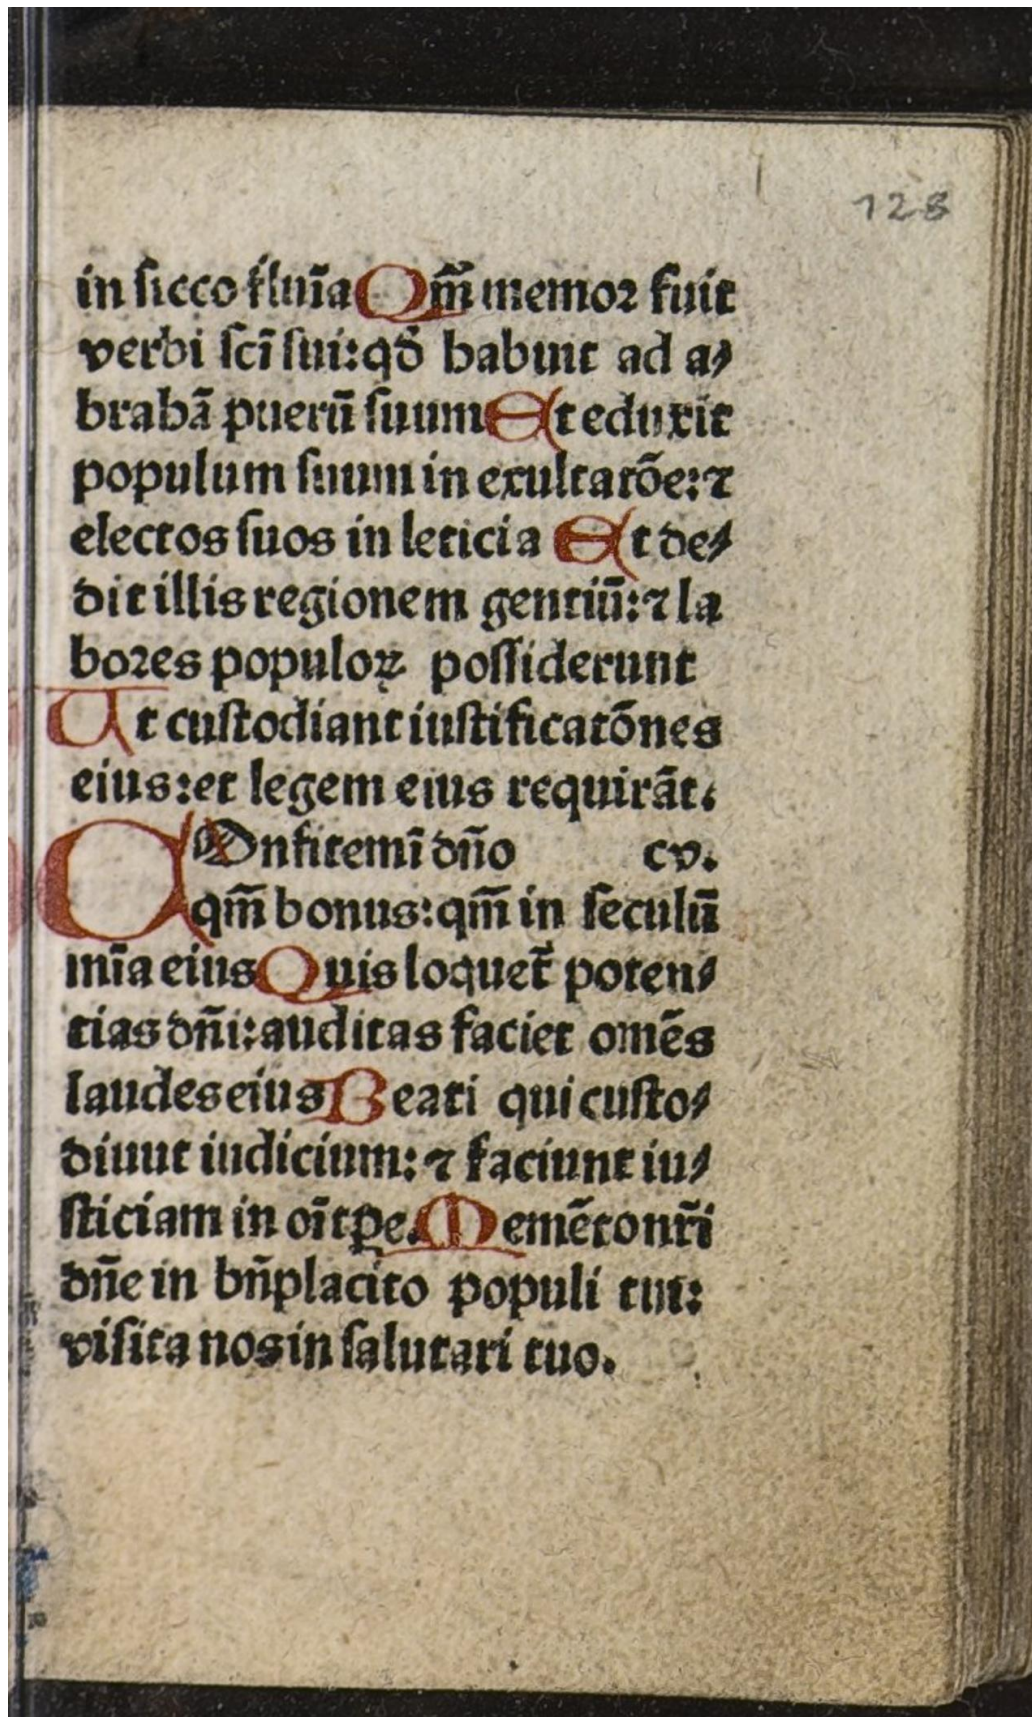 128
in sicco flūīa Qm̄ memor fuit
verbi sci̅ sui: qđ habuit ad a⸗
brahā puerū suum Et eduxit
populum suum in exultatōe: ⁊
electos suos in leticia Et de⸗
dit illis regionem gentiū: ⁊ la
bores populoꝝ possiderunt
Ut custodiant iustificatōnes
eius: et legem eius requirāt.
COnfitemī dn̄o cv.
qm̄ bonus: qm̄ in seculū
mīa eius Quis loquet̄ poten⸗
tias dn̄i: auditas faciet omēs
laudes eius Beati qui custo⸗
diuut iudicium: ⁊ faciunt iu⸗
sticiam in oī tꝑe. Memēto nr̄i
dn̄e in bn̄placito populi tui:
visita nos in salutari tuo.